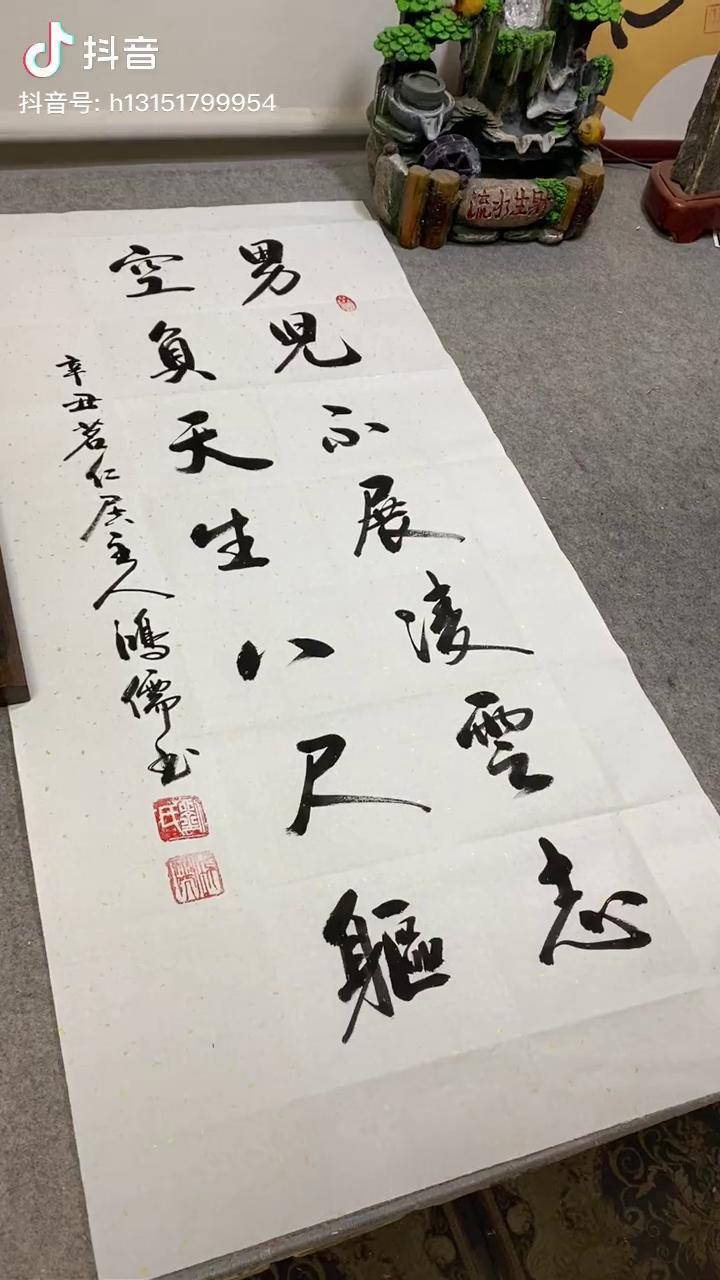 抖音
抖音号: h13151799954
流水生财
男兒不展凌雲志
空負天生八尺軀
辛丑茗仁居主人鴻儒書
劉氏